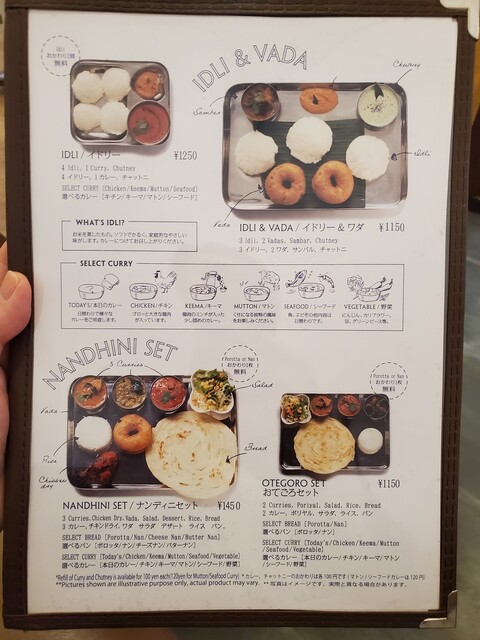 Idli
おかわり2個
無料
IDLI & VADA
Sambar
Chutney
Idli
Vada
IDLI / イドリー ¥1250
4 Idli, 1 Curry, Chutney
4 イドリー, 1 カレー, チャットニ
SELECT CURRY [Chicken/Keema/Mutton/Seafood]
選べるカレー [キチン/キーマ/マトン/シーフード]
WHAT'S IDLI?
お米を蒸したもの。ソフトでかるく、家庭的なやさしい
味がします。カレーにつけてお召し上がりください。
IDLI & VADA / イドリー & ワダ ¥1150
3 Idli, 2 Vadas, Sambar, Chutney
3 イドリー, 2 ワダ, サンバル, チャットニ
SELECT CURRY
TODAY'S/本日のカレー
日替わりで様々な
カレーをご用意します。
CHICKEN/チキン
ゴロっと大きな鶏肉
が入っています。
KEEMA/キーマ
鶏肉のミンチが入った
少し甘めのカレー。
MUTTON/マトン
くせになる独特の風味
をお楽しみください。
SEAFOOD/シーフード
魚、エビその他内容は
日替わりです。
VEGETABLE/野菜
にんじん、カリフラワー、
豆、グリーンピース等。
NANDHINI SET
3 Curries
Porotta or Nan
おかわり1枚
無料
Salad
Vada
Rice
Chicken
day
Bread
Porotta or Nan
おかわり1枚
無料
NANDHINI SET / ナンディニセット ¥1450
3 Curries, Chicken Dry, Vada, Salad, Dessert, Rice, Bread
3 カレー, チキンドライ, ワダ サラダ デザート ライス パン,
SELECT BREAD [Porotta/Nan/Cheese Nan/Butter Nan]
選べるパン [ポロッタ/ナン/チーズナン/バターナン]
SELECT CURRY [Today's/Chicken/Keema/Mutton/Seafood/Vegetable]
選べるカレー [本日のカレー/チキン/キーマ/マトン/シーフード/野菜]
OTEGORO SET ¥1150
おてごろセット
2 Curries, Poriyal, Salad, Rice, Bread
2 カレー, ポリヤル, サラダ, ライス, パン
SELECT BREAD [Porotta/Nan]
選べるパン [ポロッタ/ナン]
SELECT CURRY [Today's/Chicken/Keema/Mutton
/Seafood/Vegetable]
選べるカレー [本日のカレー/チキン/キーマ/マトン
/シーフード/野菜]
*Refill of Curry and Chutney is available for 100 yen each(120yen for Mutton/Seafood Curry) *カレー、チャットニーのおかわりは各100円です(マトン/シーフードカレーは120円)
**Pictures shown are illustrative purpose only, actual product may vary. **写真はイメージです。実際と異なる場合があります。